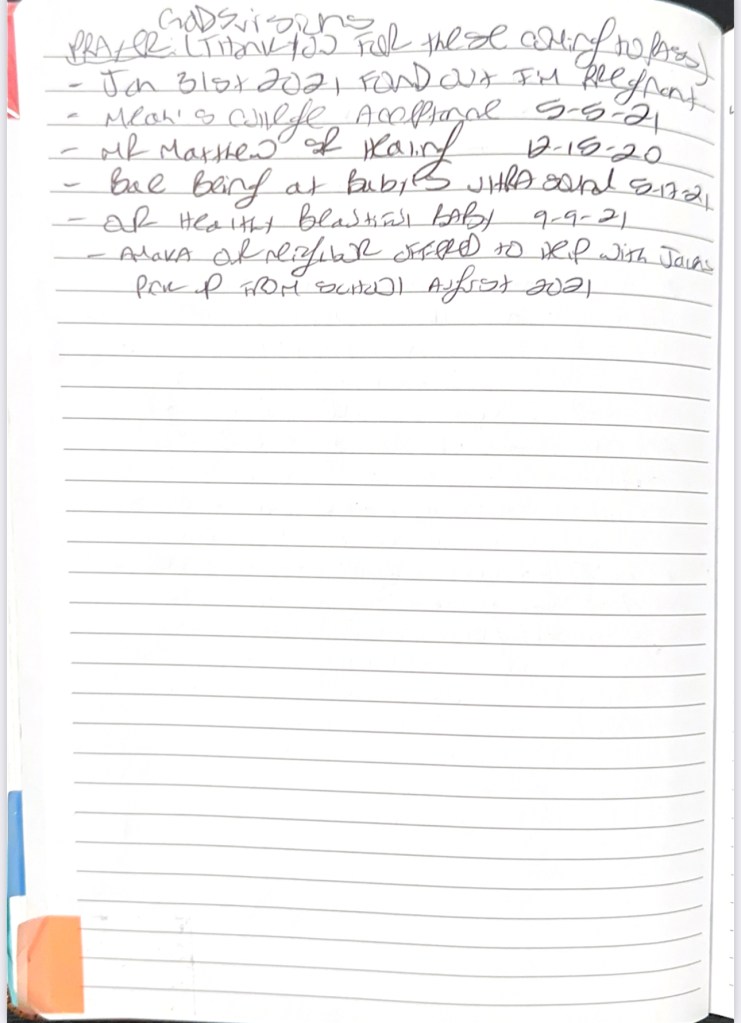 GODS visions
PRAYER: (Thank you For these coming to pass)
- Jan 31st 2021 FOND out I'M Pregnant
- College Acceptance 5-5-21
- MR Matthew Healing 12-15-20
- Bae Being at Baby's 5-17-21
- OR Healthy Beautiful BABY 9-9-21
- OR neighbor offered to help with
Pick up FROM School August 2021